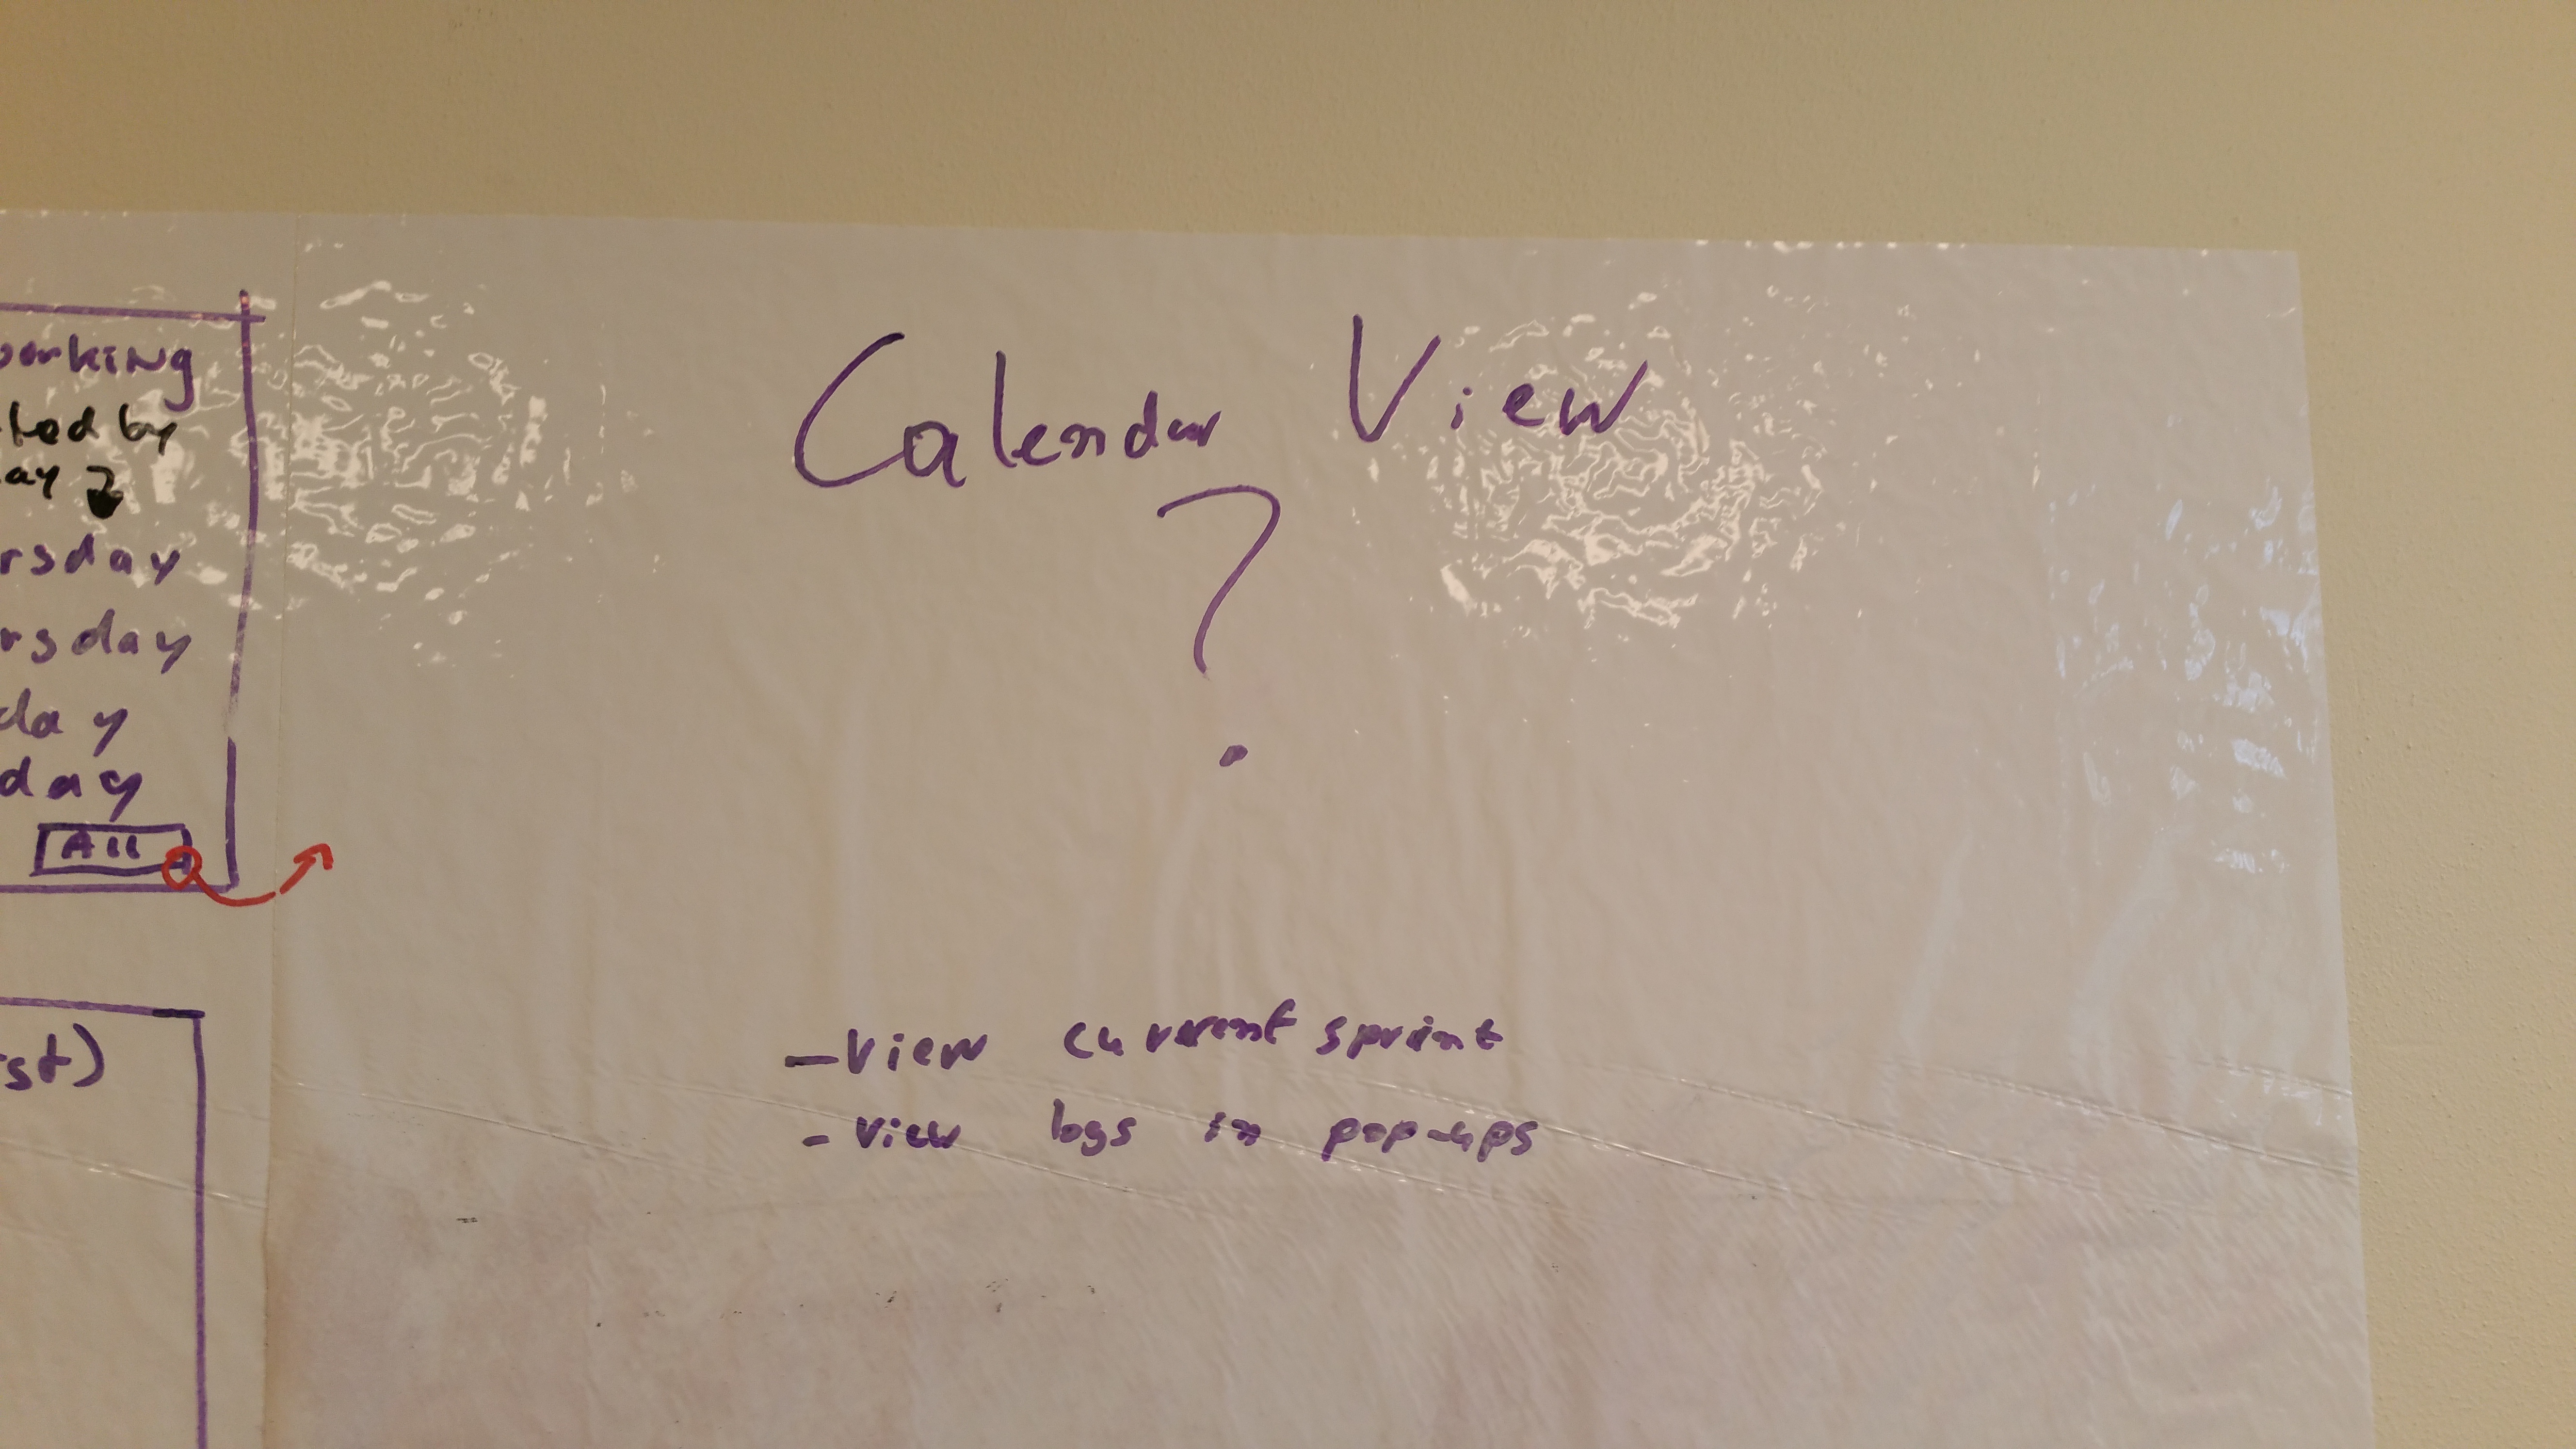 orking
ted by
ay
rsday
rsday
day
day
All
st)
Calendar View
?
- View current sprint
- View logs in pop-ups